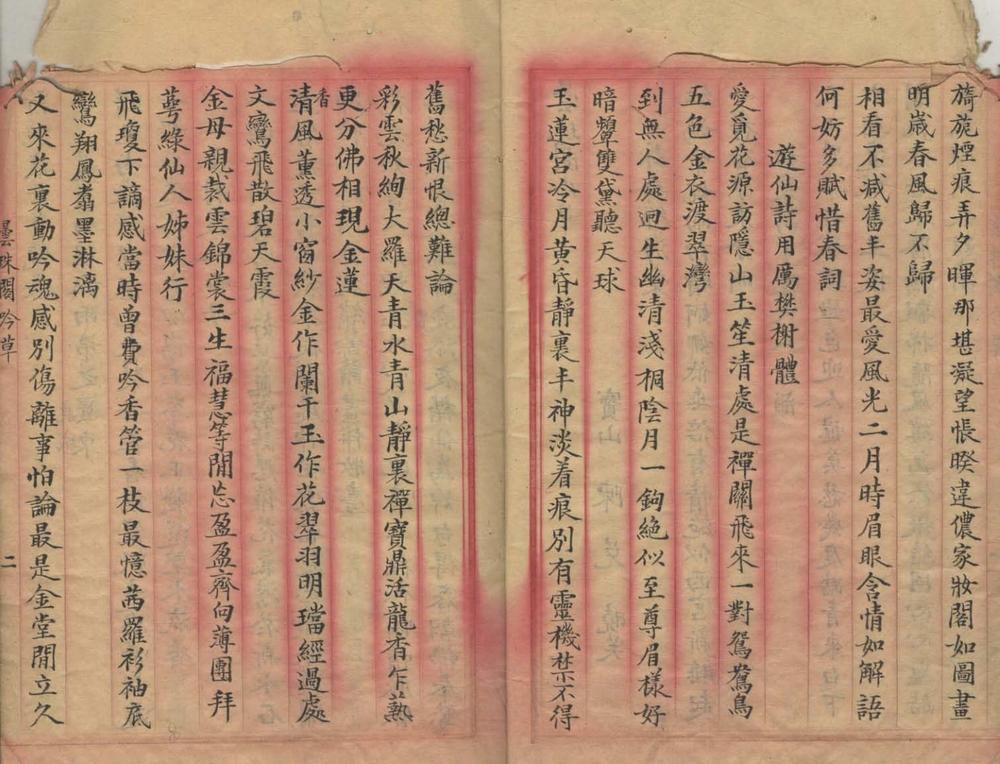 旖旎煙痕弄夕暉那堪凝望悵暌違儂家妝閣如圖畫
明歲春風歸不歸
相看不減舊丰姿最愛風光二月時眉眼含情如解語
何妨多賦惜春詞
遊仙詩用厲樊榭體
愛覓花源訪隱山玉笙清處是禪關飛來一對鴛鴦鳥
五色金衣渡翠灣
到無人處迥生幽清淺桐陰月一鉤絕似至尊眉樣好
暗顰雙黛聽天球
玉蓮宮冷月黃昏靜裏丰神淡着痕別有靈機禁不得
舊愁新恨總難論
彩雲秋絢大羅天青水青山靜裏禪寶鼎活龍香乍熱
更分佛相現金蓮
香
清風薰透小窗紗金作闌干玉作花翠羽明璫經過處
文鸞飛散碧天霞
金母親裁雲錦裳三生福慧等閒忘盈盈齊向薄團拜
萼綠仙人姊妹行
飛瓊下謫感當時曾費吟香管一枝最憶茜羅衫袖底
鸞翔鳳翥墨淋漓
又來花裏動吟魂感別傷離事怕論最是金堂閒立久
曇珠閣吟草
二